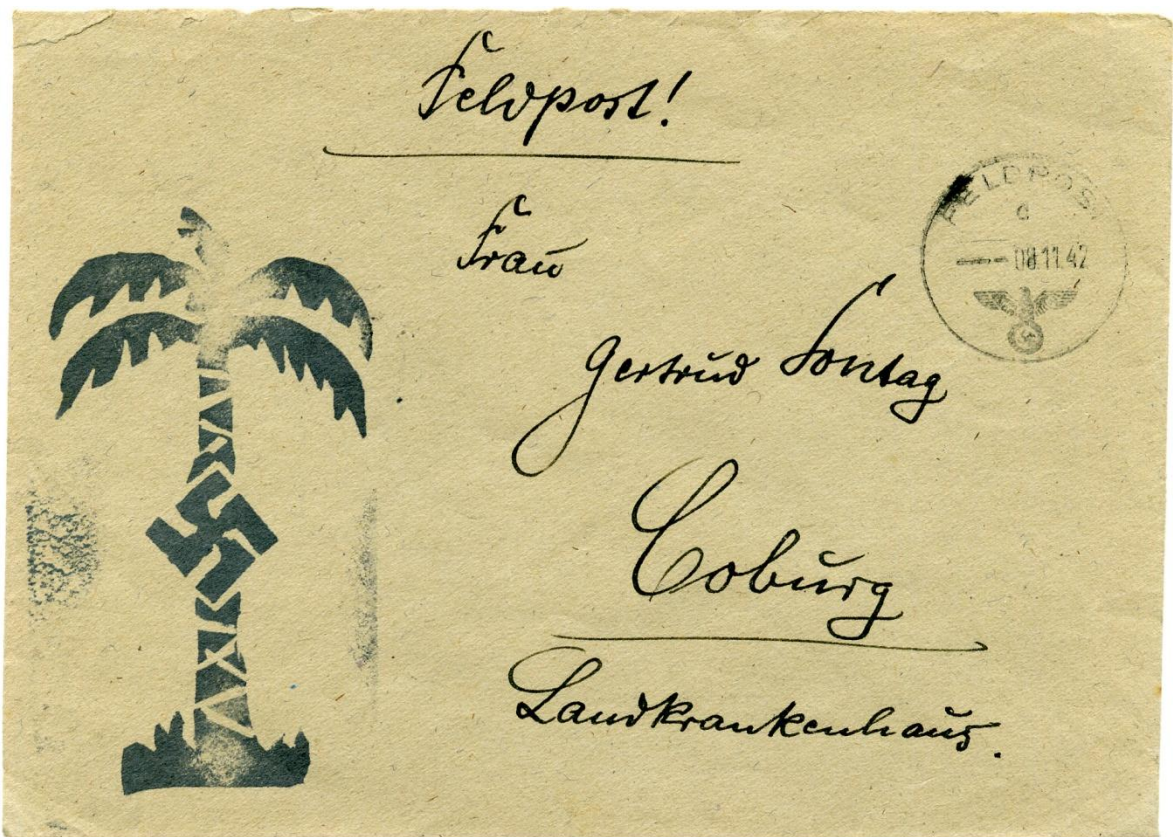 Feldpost!
FELDPOST
d
08.11.42
Frau
Gertrud Sontag
Coburg
Landkrankenhaus.